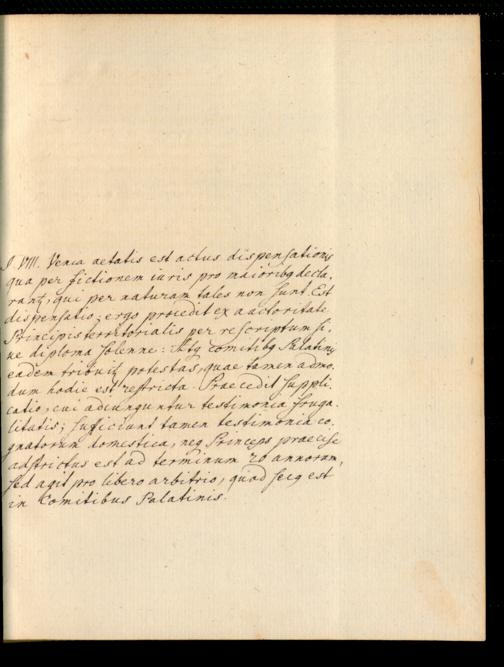 §. VIII. Venia aetatis est actus dispensationis
qua per fictionem iuris pro maioribq decla-
rantʒ, qui per naturam tales non sunt. Est
dispensatio; ergo procedit ex auctoritate
Principis territorialis per rescriptum si-
ve diploma solenne: comitibq Palatinis
eadem tribuitʒ potestas, quae tamen admo-
dum hodie est restricta. Praecedit suppli-
catio, cui adiunguntur testimonia fruga-
litatis; suficiunt tamen testimonia co-
gnatorum domestica, neq Princeps praecise
adstrictus est ad terminum 20 annorum,
sed agit pro libero arbitrio, quod secq est
in Comitibus Palatinis.